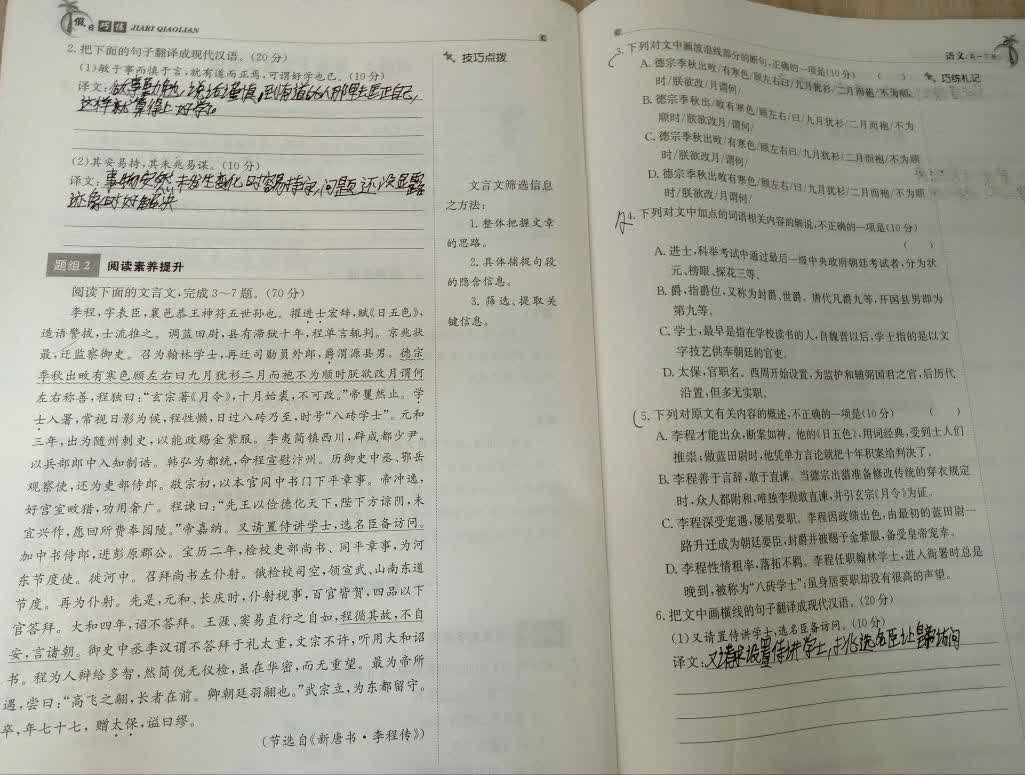 假日巧练 JIARI QIAOLIAN
2.把下面的句子翻译成现代汉语。(20分)
(1)敏于事而慎于言,就有道而正焉,可谓好学也已。(10分)
译文:做事勤勉,说话谨慎,到有道的人那里去匡正自己,
这样就算得上好学。
(2)其安易持,其未兆易谋。(10分)
译文:事物安然未发生变化时容易持守,问题还没显露
迹象时好解决
题组2 阅读素养提升
阅读下面的文言文,完成3~7题。(70分)
李程,字表臣,襄邑恭王神符五世孙也。擢进士宏辞,赋《日五色》,
造语警拔,士流推之。调蓝田尉,县有滞狱十年,程单言辄判。京兆状
最,迁监察御史。召为翰林学士,再迁司勋员外郎,爵渭源县男。德宗
季秋出畋有寒色顾左右曰九月犹衫二月而袍不为顺时朕欲改月谓何
左右称善,程独曰:“玄宗著《月令》,十月始裘,不可改。”帝矍然止。学
士入署,常视日影为候,程性懒,日过八砖乃至,时号“八砖学士”。元和
三年,出为随州刺史,以能政赐金紫服。李夷简镇西川,辟成都少尹。
以兵部郎中入知制诰。韩弘为都统,命程宣慰汴州。历御史中丞、鄂岳
观察使,还为吏部侍郎。敬宗初,以本官同中书门下平章事。帝冲逸,
好宫室畋猎,功用奢广。程谏曰:“先王以俭德化天下,陛下方谅阴,未
宜兴作,愿回所费奉园陵。”帝嘉纳。又请置侍讲学士,选名臣备访问。
加中书侍郎,进彭原郡公。宝历二年,检校吏部尚书、同平章事,为河
东节度使。徙河中。召拜尚书左仆射。俄检校司空,领宣武、山南东道
节度。再为仆射。先是,元和、长庆时,仆射视事,百官皆贺,四品以下
官答拜。大和四年,诏不答拜。王涯、窦易直行之自如,程循其故,不自
安,言诸朝。御史中丞李汉谓不答拜于礼太重,文宗不许,听用大和诏
书。程为人辩给多智,然简侻无仪检,虽在华密,而无重望。最为帝所
遇,尝曰:“高飞之翮,长者在前。卿朝廷羽翮也。”武宗立,为东都留守。
卒,年七十七,赠太保,谥曰缪。
(节选自《新唐书·李程传》)
技巧点拨
文言文筛选信息
之方法:
1.整体把握文章
的思路。
2.具体捕捉句段
的隐含信息。
3.筛选、提取关
键信息。
语文/高一下册
巧练札记
3.下列对文中画波浪线部分的断句,正确的一项是(10分) ( )
A.德宗季秋出畋/有寒色/顾左右/曰/九月犹衫/二月而袍/不为顺
时/朕欲改月谓何/
B.德宗季秋出/畋有寒色/顾左右/曰/九月犹衫/二月而袍/不为
顺时/朕欲改月/谓何/
C.德宗季秋出畋/有寒色/顾左右曰/九月犹衫/二月而袍/不为顺
时/朕欲改月/谓何/
D.德宗季秋出畋有寒色/顾左右/曰/九月犹衫/二月而袍/不为顺
时/朕欲改月/谓何/
4.下列对文中加点的词语相关内容的解说,不正确的一项是(10分)
( )
A.进士,科举考试中通过最后一级中央政府朝廷考试者,分为状
元、榜眼、探花三等。
B.爵,指爵位,又称为封爵、世爵。唐代凡爵九等,开国县男即为
第九等。
C.学士,最早是指在学校读书的人,自魏晋以后,学士指的是以文
字技艺供奉朝廷的官吏。
D.太保,官职名。西周开始设置,为监护和辅弼国君之官,后历代
沿置,但多无实职。
5.下列对原文有关内容的概述,不正确的一项是(10分) ( )
A.李程才能出众,断案如神。他的《日五色》,用词经典,受到士人们
推崇;做蓝田尉时,他凭单方言论就把十年积案给判决了。
B.李程善于言辞,敢于直谏。当德宗出猎准备修改传统的穿衣规定
时,众人都附和,唯独李程敢直谏,并引玄宗《月令》为证。
C.李程深受宠遇,屡居要职。李程因政绩出色,由最初的蓝田尉一
路升迁成为朝廷要臣,封爵并被赐予金紫服,备受皇帝宠幸。
D.李程性情粗率,落拓不羁。李程任职翰林学士,进入衙署时总是
晚到,被称为“八砖学士”;虽身居要职却没有很高的声望。
6.把文中画横线的句子翻译成现代汉语。(20分)
(1)又请置侍讲学士,选名臣备访问。(10分)
译文:又请求设置侍讲学士,挑选名臣让皇帝访问